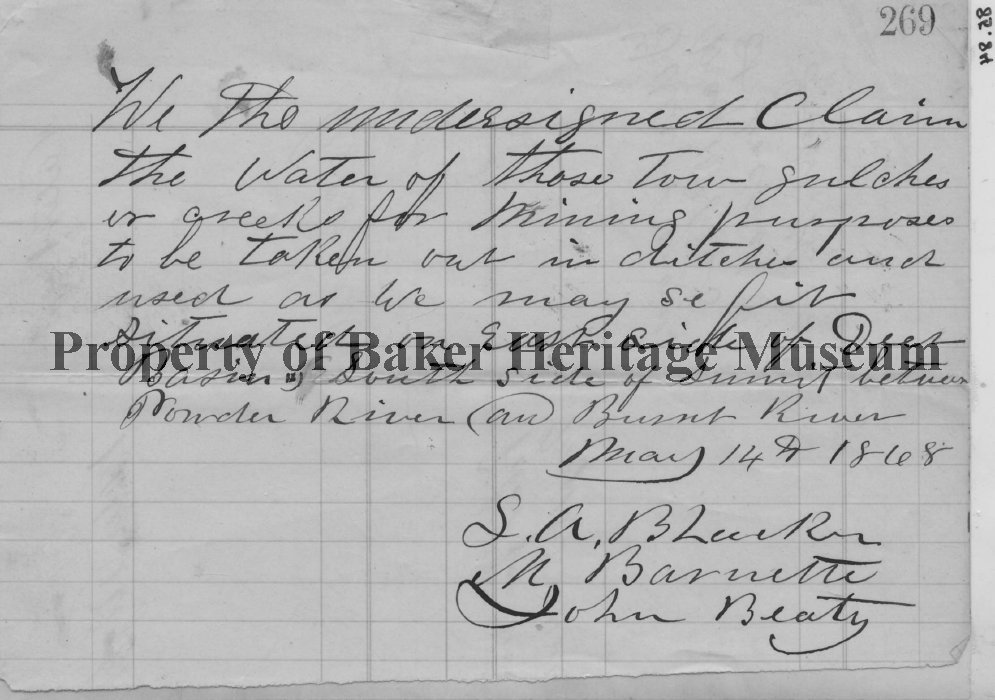 269
82.84
We the undersigned Claim
the Water of those Tow gulches
or creeks for Mining purposes
to be taken out in ditches and
used as We may se fit
Situated on East side of Deer
Property of Baker Heritage Museum
Basin, South Side of Sumit between
Powder River (an) Burnt River
May 14th 1868
S. A. Blacker
M Barnette
John Beaty